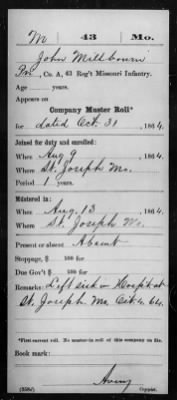 M | 43 | Mo.
John Millbourn
Pvt., Co. A, 43 Reg't Missouri Infantry.
Age years.
Appears on
Company Master Roll*
for dated Oct. 31, 1864.
Joined for duty and enrolled:
When Aug 9, 1864.
Where St. Joseph Mo.
Period 1 years.
Mustered in:
When Aug. 13, 1864.
Where St. Joseph Mo.
Present or absent Absent
Stoppage, $ 100 for
Due Gov't $ 100 for
Remarks: Left sick in Hospit at
St. Joseph Mo. Oct 4. 64.
*First current roll. No muster-in roll of this company on file.
Book mark:
(358c) Avery
Copyist.